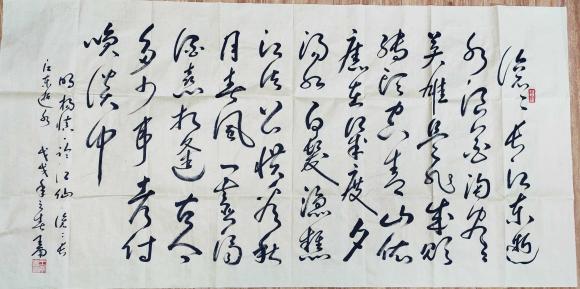 滚々长江东逝
水浪花淘尽
英雄是非成败
转头空青山依
旧在几度夕
阳红白发渔樵
江渚上惯看秋
月春风一壶浊
酒喜相逢古今
多少事都付
笑谈中
明杨慎临江仙滚々长
江东逝水 戊戌年立春书